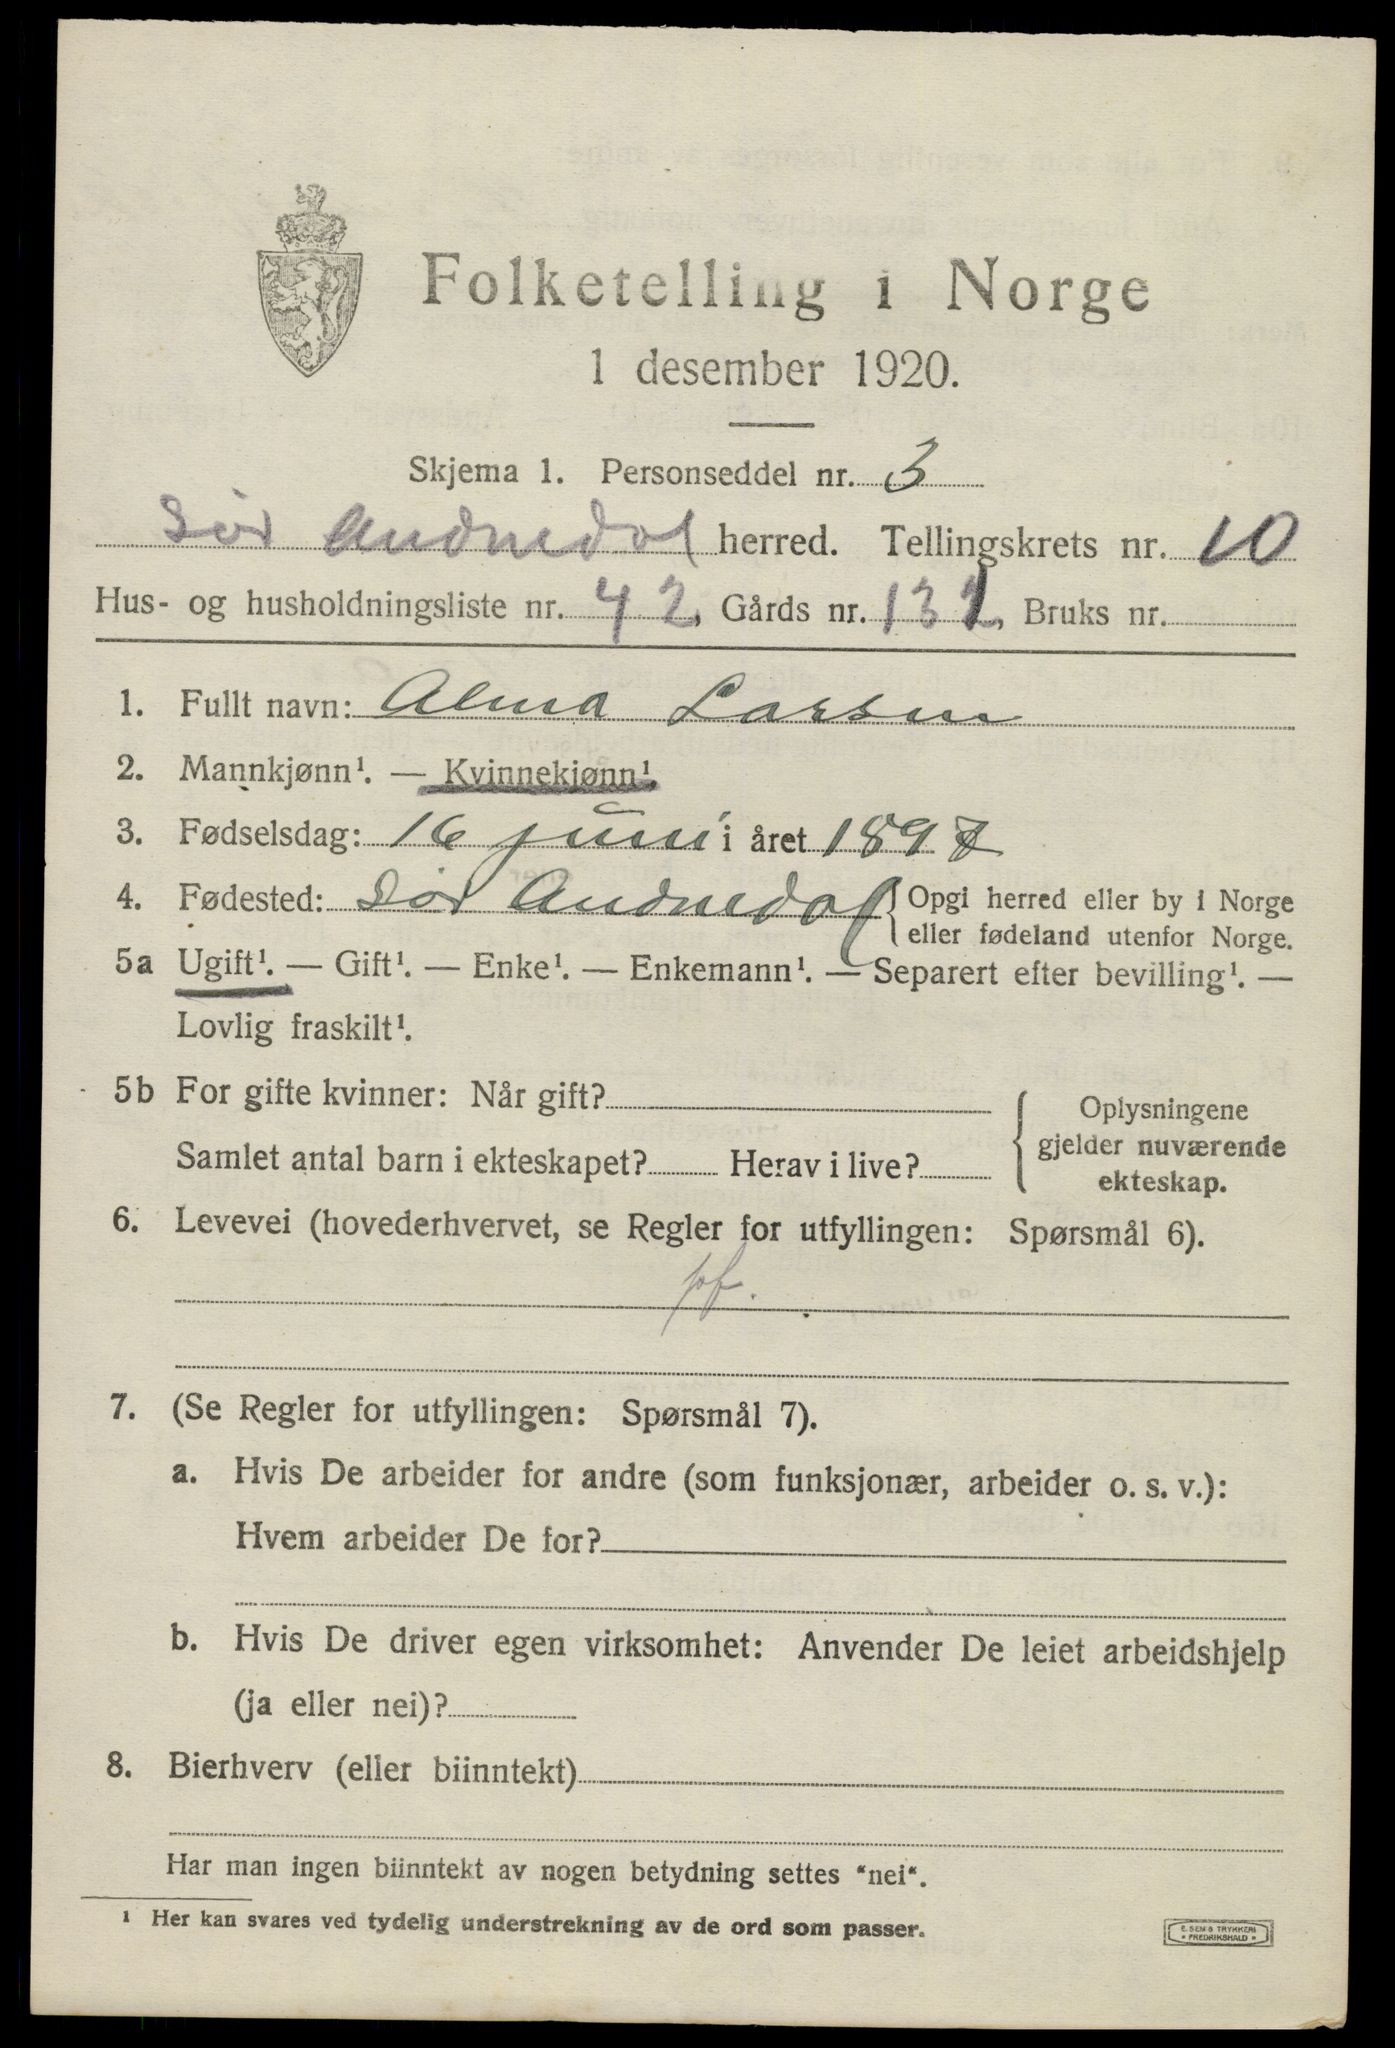 Folketelling i Norge
1 desember 1920.
Skjema 1. Personseddel nr. 3
Sør Audnedal herred. Tellingskrets nr. 10
Hus- og husholdningsliste nr. 42, Gårds nr. 132, Bruks nr.
1. Fullt navn: Alma Larsen
2. Mannkjønn¹. — Kvinnekjønn¹.
3. Fødselsdag: 16 juni i året 1897
4. Fødested: Sør Audnedal { Opgi herred eller by i Norge
eller fødeland utenfor Norge.
5a Ugift¹. — Gift¹. — Enke¹. — Enkemann¹. — Separert efter bevilling¹. —
Lovlig fraskilt¹.
5b For gifte kvinner: Når gift?
Samlet antal barn i ekteskapet? Herav i live?
{ Oplysningene
gjelder nuværende
ekteskap.
6. Levevei (hovederhvervet, se Regler for utfyllingen: Spørsmål 6).
pf.
7. (Se Regler for utfyllingen: Spørsmål 7).
a. Hvis De arbeider for andre (som funksjonær, arbeider o. s. v.):
Hvem arbeider De for?
b. Hvis De driver egen virksomhet: Anvender De leiet arbeidshjelp
(ja eller nei)?
8. Bierhverv (eller biinntekt)
Har man ingen biinntekt av nogen betydning settes "nei".
¹ Her kan svares ved tydelig understrekning av de ord som passer.
E. SEM'S TRYKKERI
* FREDRIKSHALD *